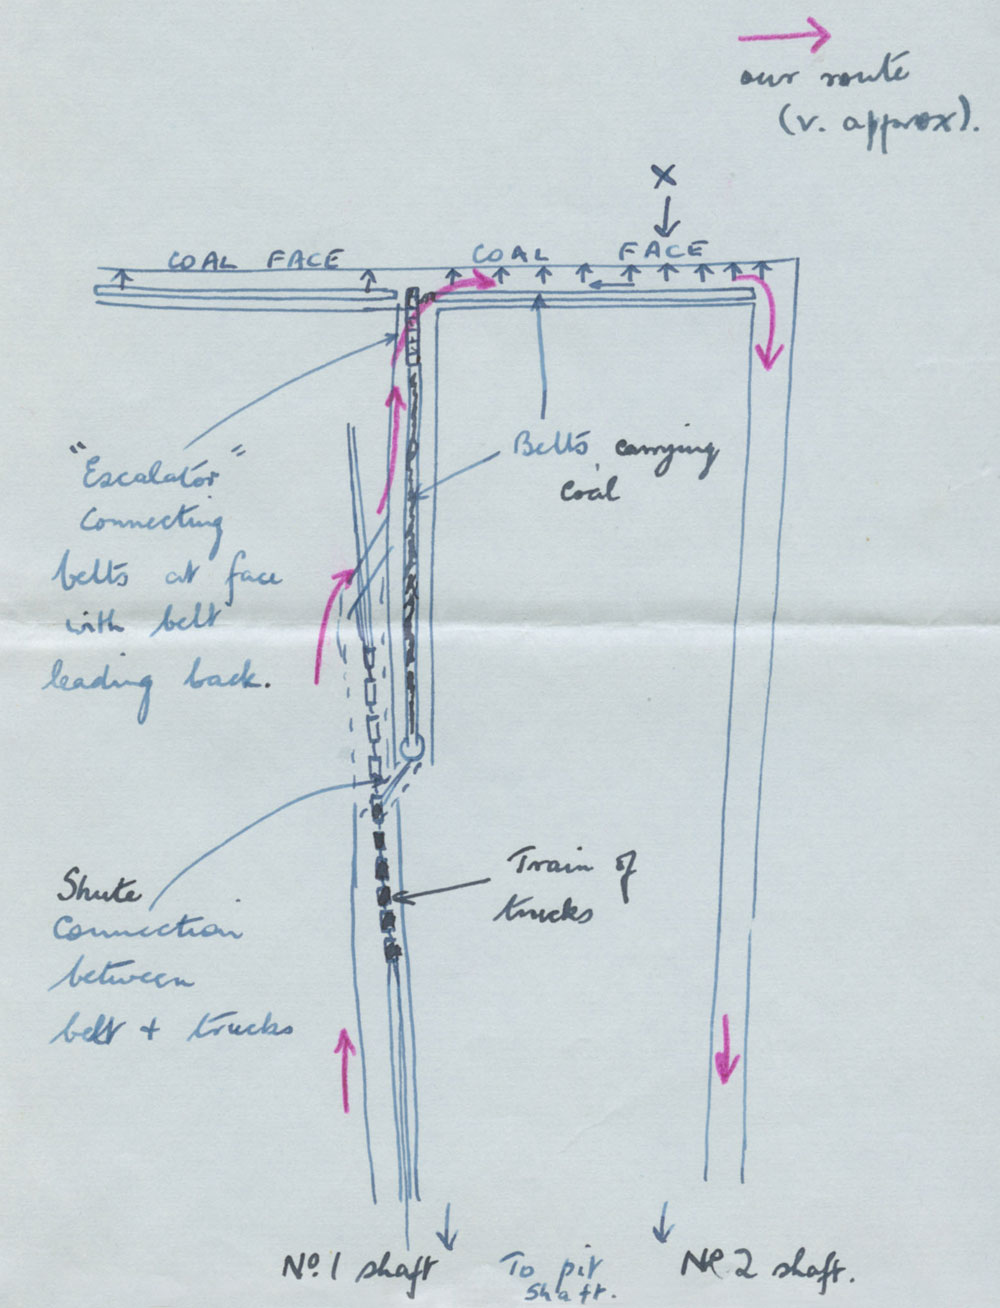 our route
(v. approx).
X
COAL FACE
COAL FACE
"Escalator"
Connecting
belts at face
with belt
leading back.
Belts carrying
Coal
Shute
Connection
between
belt + trucks
Train of
trucks
No. 1 shaft
To pit
shaft.
No 2 shaft.